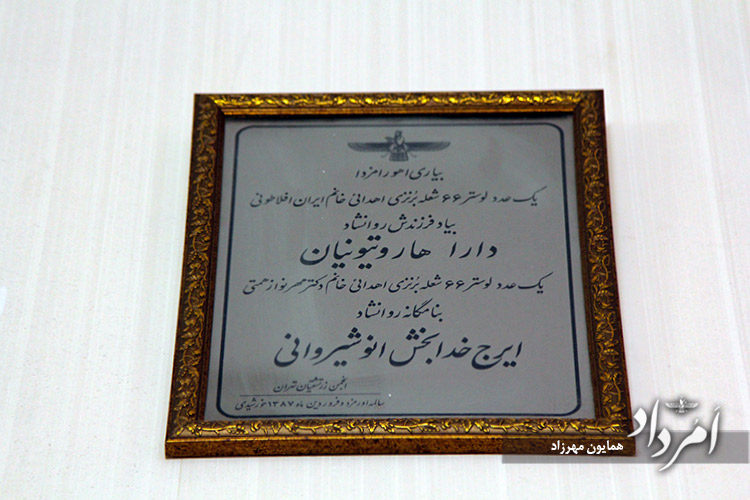 بیاری اهورامزدا
یک عدد لوستر ۶۶ شعله برنزی اهدائی خانم ایران افلاطونی
بیاد فرزندش روانشاد
دارا هاروتیونیان
یک عدد لوستر ۶۶ شعله برنزی اهدائی خانم دکتر مهرنواز همتی
بنامگانه روانشاد
ایرج خدابخش انوشیروانی
انجمن زرتشتیان تهران
بتاریخ اورمزد و فروردین ماه ۱۳۸۷ خورشیدی
اَمُرداد
همایون مهرزاد